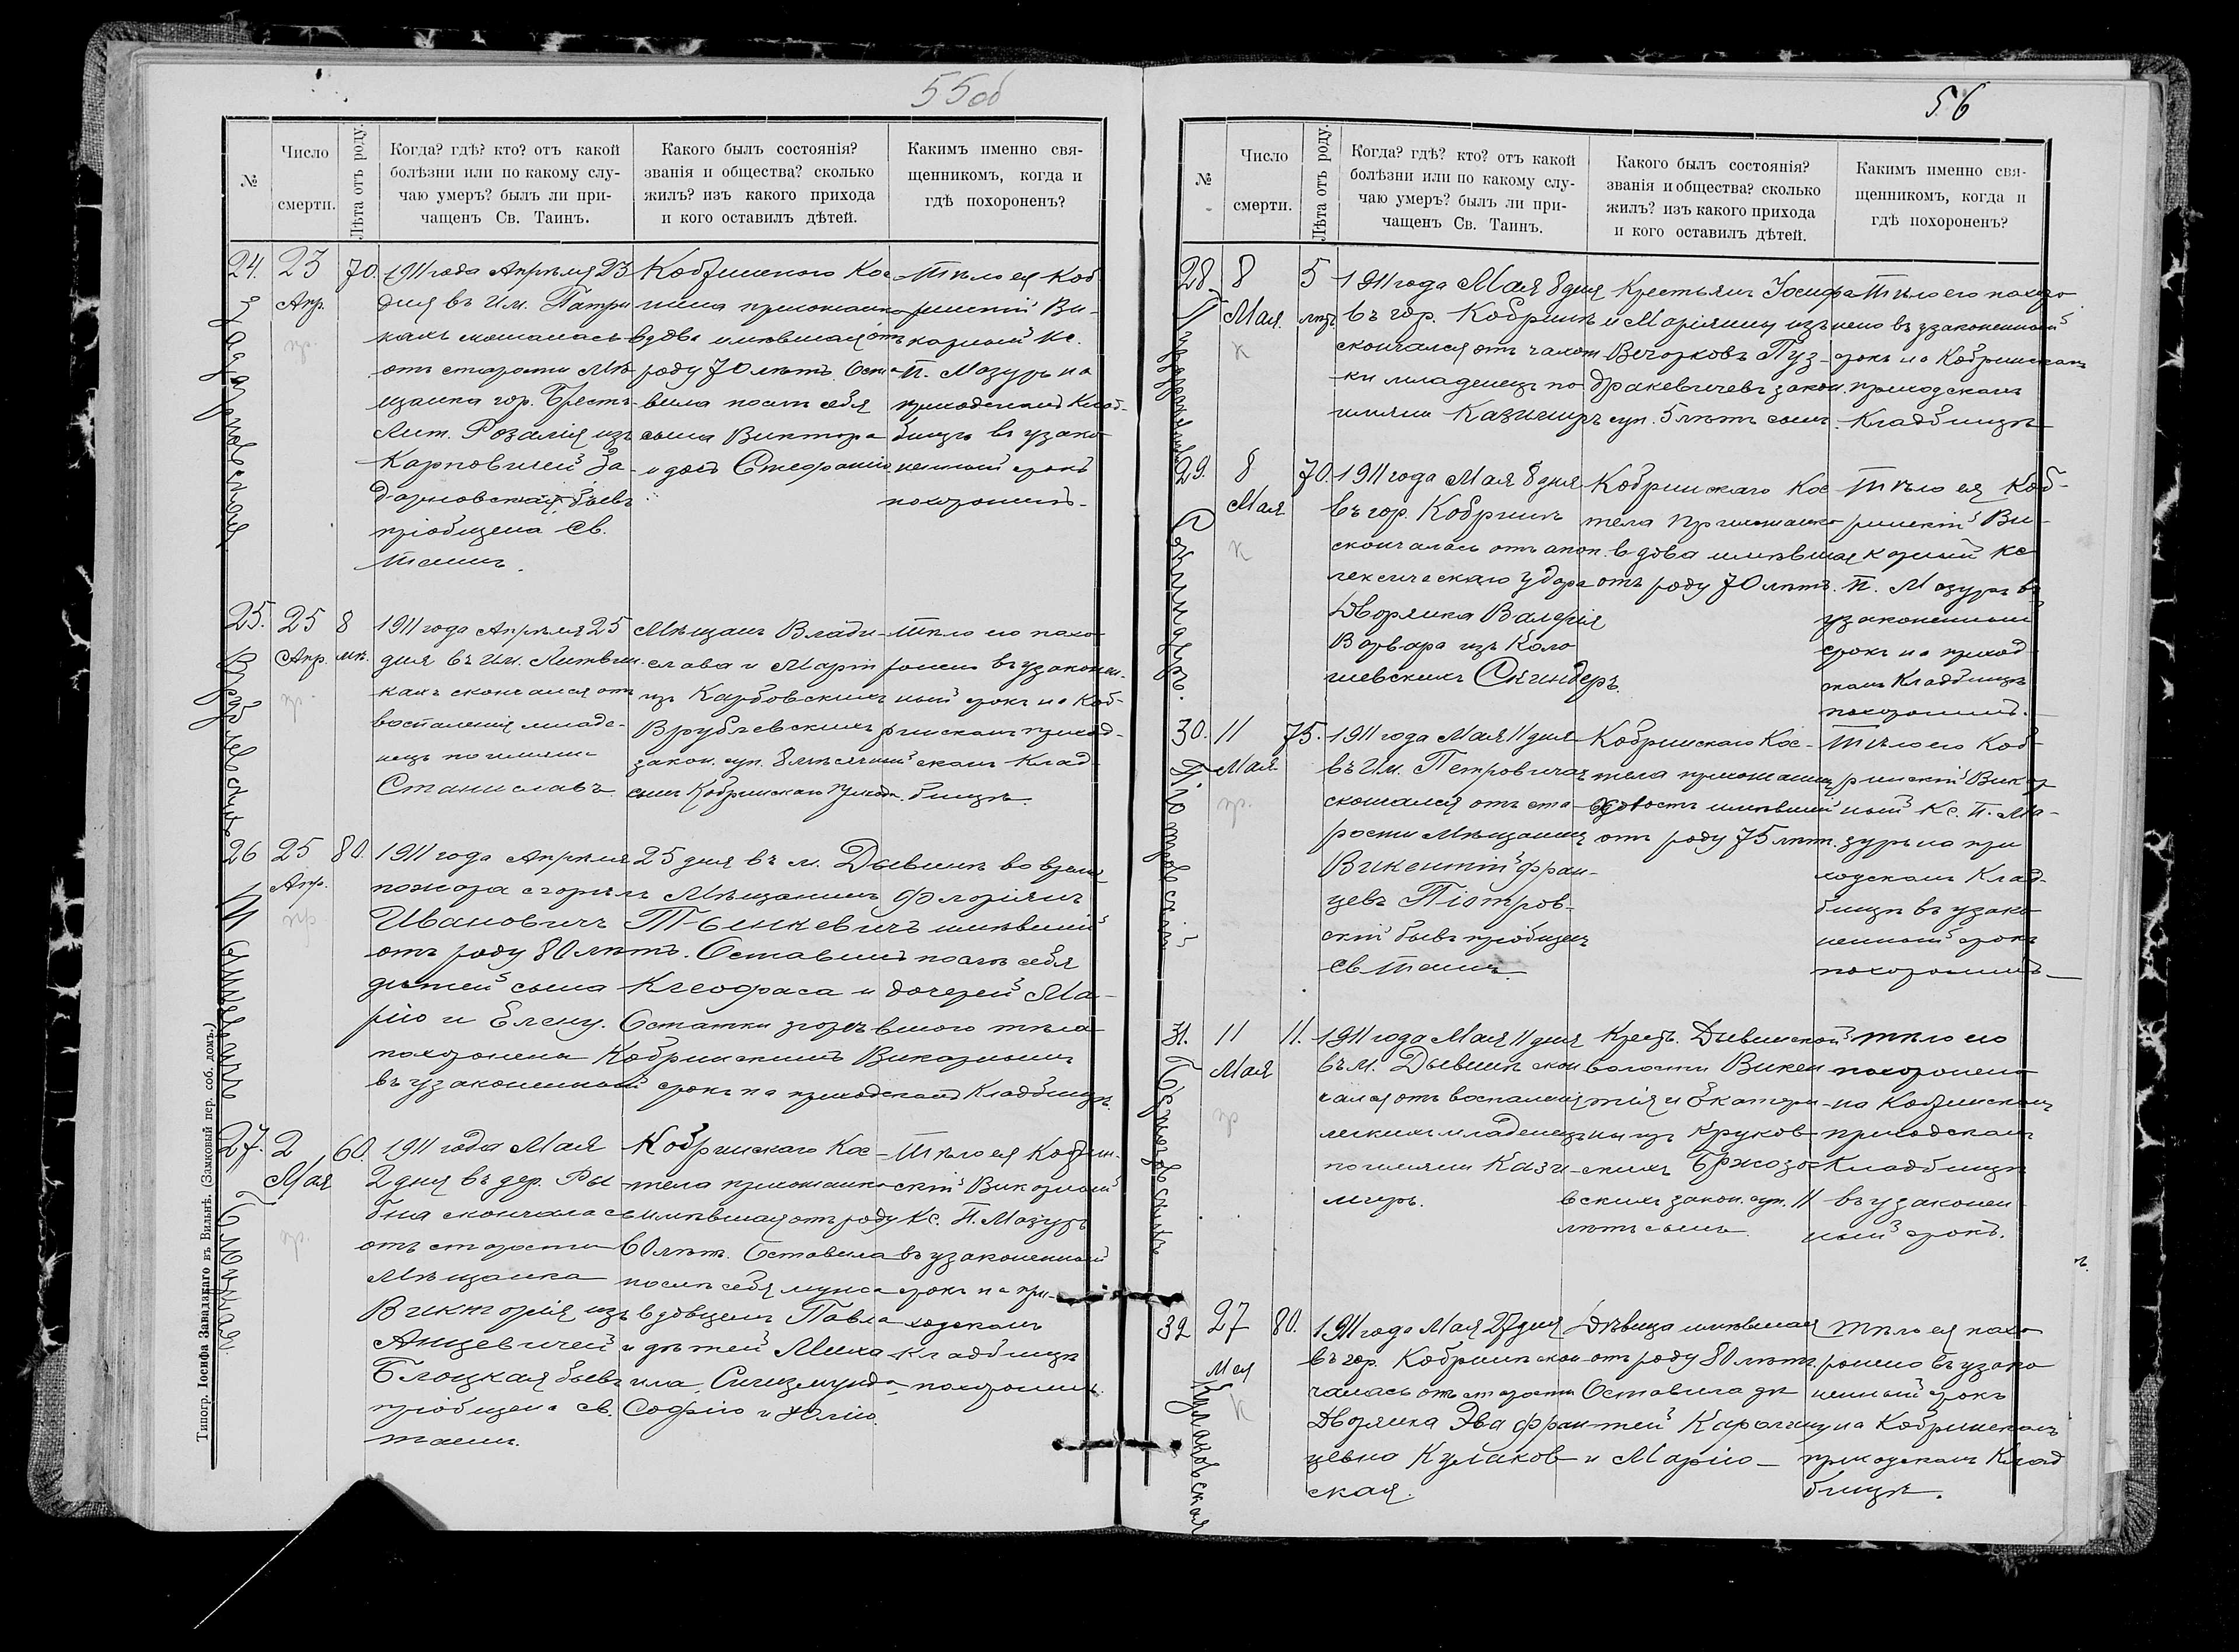 55об
№
Число
смерти.
Лѣта отъ роду.
Когда? гдѣ? кто? отъ какой
болѣзни или по какому слу-
чаю умеръ? былъ ли при-
чащенъ Св. Таинъ.
Какого былъ состоянія?
званія и общества? сколько
жилъ? изъ какого прихода
и кого оставилъ дѣтей.
Какимъ именно свя-
щенникомъ, когда и
гдѣ похороненъ?
24.
23
Апр.
пр.
70.
1911 года Апрѣля 23
дня въ Им. Патри
кахъ скончалась
отъ старости Мѣ-
щанка гор. Брестъ-
Лит. Розалія изъ
Карповичей За-
дарновская бывъ
пріобщена Св.
Таинъ.
Кобринскаго Кос-
тела прихожанка
вдова имѣвшая отъ
роду 70 лѣтъ. Оста-
вила послѣ себя
сына Виктора
и дочь Стефанію
Тѣло ея Коб
ринскій Ви-
карный Кс.
П. Мазуръ на
приходскомъ Клад-
бищѣ въ узако
ненный срокъ
похоронилъ.
25.
25
Апр.
пр.
8
мѣ.
1911 года Апрѣля 25
дня въ Им. Литвин
кахъ скончался отъ
воспаленія младе-
нецъ по имени
Станиславъ.
Мѣщанъ Влади-
слава и Маріи
изъ Карбовскихъ
Врублевскихъ
закон. суп. 8 мѣсячный
сынъ Кобринскаго прихода.
Тѣло его похо
ронено въ узаконен-
ный срокъ на Коб-
ринскомъ приход-
скомъ Клад
бищѣ.
Врублевскій
26
25
Апр.
пр
80.
1911 года Апрѣля 25 дня въ м. Дывинѣ во время
пожара сгорѣлъ Мѣщанинъ Флоріянъ
Ивановичъ имѣвшій
отъ роду 80 лѣтъ. Оставилъ послѣ себя
дѣтей сына Клеофаса и дочерей Ма-
рію и Елену. Остатки сгорѣвшаго тѣла
похоронены Кобринскимъ Викарнымъ
въ узаконенный срокъ на приходскомъ Кладбищѣ.
27.
2
Мая
пр.
60.
1911 года Мая
2 дня въ дер. Ры
бна скончалась
отъ старости
Мѣщанка
Викторія изъ
Анцевичей
Блоцкая бывъ
пріобщена св.
таинъ.
Кобринскаго Кос-
тела прихожанка
имѣвшая отъ роду
60 лѣтъ. Оставила
послѣ себя мужа
вдовцемъ Павла
и дѣтей Миха
ила, Сигизмунда,
Софію и Юлію.
Тѣло ея Кобрин-
скій Викарный
Кс. П. Мазуръ
въ узаконенный
срокъ на при-
ходскомъ
кладбищѣ
похоронилъ.
Типогр. Іосифа Завадзкаго въ Вильнѣ. (Замковый пер. соб. домъ.)
56
№
Число
смерти.
Лѣта отъ роду.
Когда? гдѣ? кто? отъ какой
болѣзни или по какому слу-
чаю умеръ? былъ ли при-
чащенъ Св. Таинъ.
Какого былъ состоянія?
званія и общества? сколько
жилъ? изъ какого прихода
и кого оставилъ дѣтей.
Какимъ именно свя-
щенникомъ, когда и
гдѣ похороненъ?
28.
8
Мая.
к
5
лѣтъ
1911 года Мая 8 дня
въ гор. Кобринѣ
скончался отъ чахот
ки младенецъ по
имени Казимиръ
Крестьянъ Іосифа
и Маріянны изъ
Вечорковъ Пуз-
дракевичевъ закон.
суп. 5 лѣтъ сынъ.
Тѣло его похоро
нено въ узаконенный
срокъ на Кобринскомъ
приходскомъ
Кладбищѣ
29.
8
Мая
к
70.
1911 года Мая 8 дня
въ гор. Кобринѣ
скончалась отъ апоп.
лексическаго удара
Дворянка Валерія
Варвара изъ Коло
гривскихъ Скиндеръ.
Кобринскаго Кос
тела прихожанка
вдова имѣвшая
отъ роду 70 лѣтъ.
Тѣло ея Коб-
ринскій Ви-
карный Кс
П. Мазуръ въ
узаконенный
срокъ на приход
скомъ Кладбищѣ
похоронилъ.
Скиндеръ.
30.
11
Мая
пр.
75.
1911 года Мая 11 дня
въ Им. Петровичахъ
скончался отъ ста-
рости Мѣщанинъ
Викентій Фран-
цевъ Піотров-
скій бывъ пріобщенъ
Св Таинъ.
Кобринскаго Кос-
тела прихожанинъ
холостъ имѣвшій
отъ роду 75 лѣтъ.
Тѣло его Коб
ринскій Викар
ный Кс. П. Ма-
зуръ на при
ходскомъ Клад-
бищѣ въ узако
ненный срокъ
похоронилъ
Піотровскій
31.
11
Мая
пр
11.
1911 года Мая 11 дня
въ м. Дывинѣ скон
чался отъ воспаленія
легкихъ младенецъ
по имени Кази-
миръ.
Крест. Дывинской
волости Викен
тія и Екатери-
ны изъ Круков-
скихъ Бржозо-
вскихъ закон. суп. 11
лѣтъ сынъ
Тѣло его
похоронено
на Кобринскомъ
приходскомъ
Кладбищѣ
въ узаконен
ный срокъ.
32
27
Мая
К
80.
1911 года Мая 27 дня
въ гор. Кобринѣ скон
чалась отъ старости
Дворянка Эва Фран
цевна Кулаков-
ская.
Дѣвица имѣвшая
отъ роду 80 лѣтъ.
Оставила дѣ
тей Каролину
и Марію
Тѣло ея похо
ронено въ узако
ненный срокъ
на Кобринскомъ
приходскомъ Клад
бищѣ.
Кулаковская